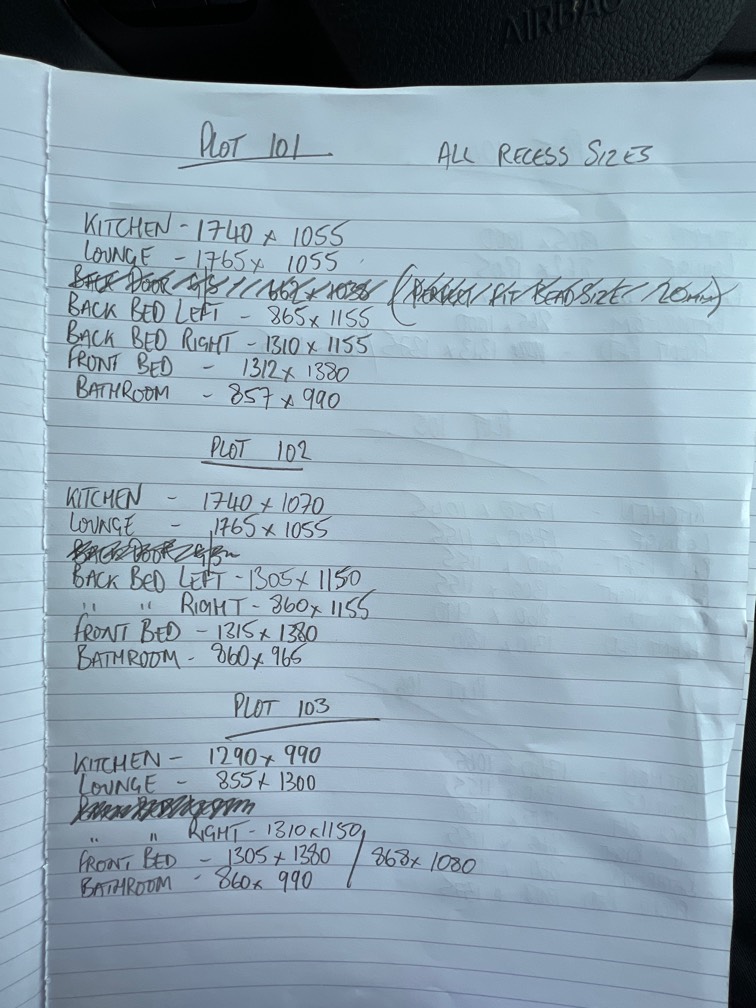 AIRBAG
PLOT 101 ALL RECESS SIZES
KITCHEN - 1740 x 1055
LOUNGE - 1765 x 1055
BACK DOOR 662 x 1036 (PERFECT FIT BEAD SIZE 20mm)
BACK BED LEFT - 865 x 1155
BACK BED RIGHT - 1310 x 1155
FRONT BED - 1312 x 1380
BATHROOM - 857 x 990
PLOT 102
KITCHEN - 1740 x 1070
LOUNGE - 1765 x 1055
BACK DOOR
BACK BED LEFT - 1305 x 1150
" " RIGHT - 860 x 1155
FRONT BED - 1315 x 1380
BATHROOM - 860 x 965
PLOT 103
KITCHEN - 1290 x 990
LOUNGE - 855 x 1300
" " RIGHT - 1310 x 1150
FRONT BED - 1305 x 1380 / 868 x 1080
BATHROOM - 860 x 990